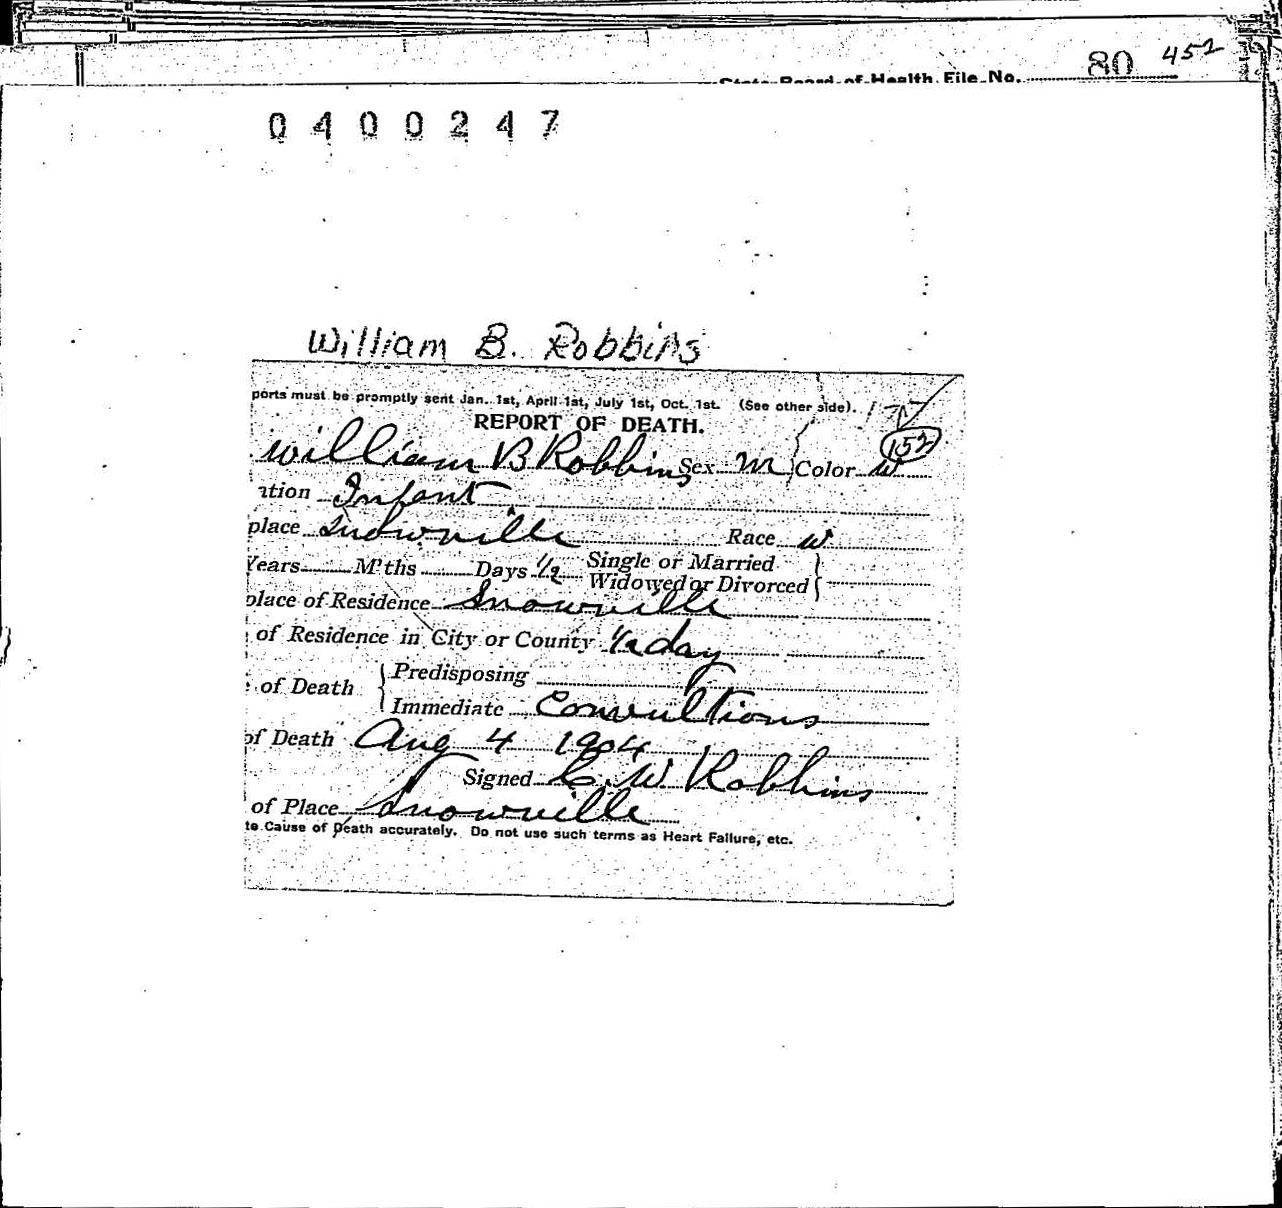 80 452
State Board of Health File No.
0400247
William B. Robbins
ports must be promptly sent Jan. 1st, April 1st, July 1st, Oct. 1st. (See other side).
REPORT OF DEATH.
152
William B Robbins Sex M Color W
ation Infant
place Snowville Race W
Years M'ths Days 1/2 Single or Married
Widowed or Divorced
place of Residence Snowville
of Residence in City or County 1/2 day
Predisposing
of Death
Immediate Convultions
of Death Aug 4 1904
Signed C. W. Robbins
of Place Snowville
te Cause of Death accurately. Do not use such terms as Heart Failure, etc.